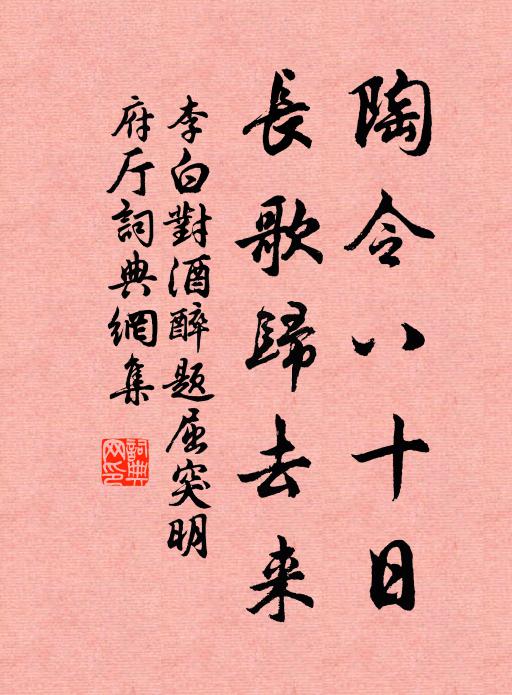 陶令八十日
長歌歸去来
李白對酒醉題屈突明
府厅詞典網集
詞典网印